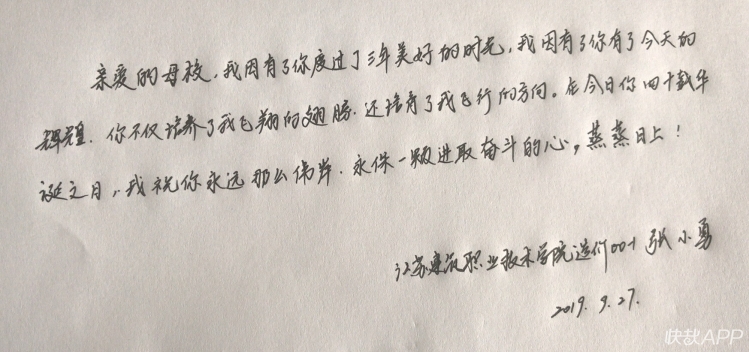 亲爱的母校，我因有了你度过了三年美好的时光，我因有了你有了今天的
辉煌．你不仅培养了我飞翔的翅膀．还培育了我飞行的方向。在今日你四十载华
诞之日，我祝你永远那么伟岸．永保一颗进取奋斗的心，蒸蒸日上！
江苏建筑职业技术学院造价001 张小勇
2019.9.27.
快裁APP